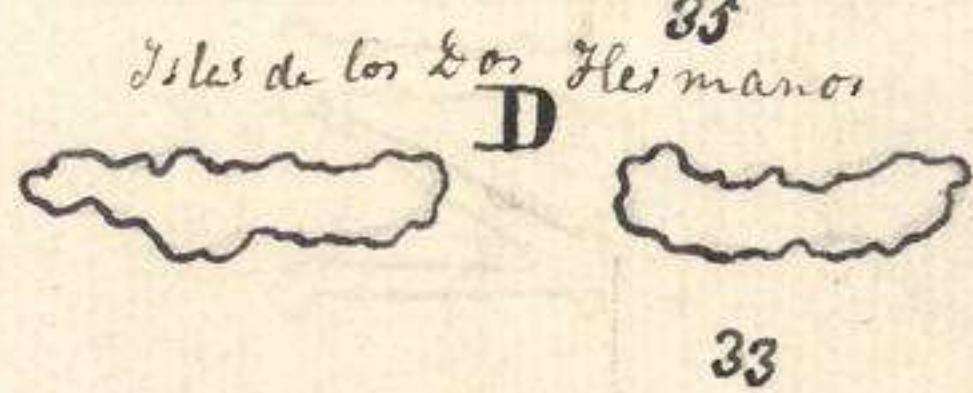 35
Isles de los Dos Hermanos
D
33